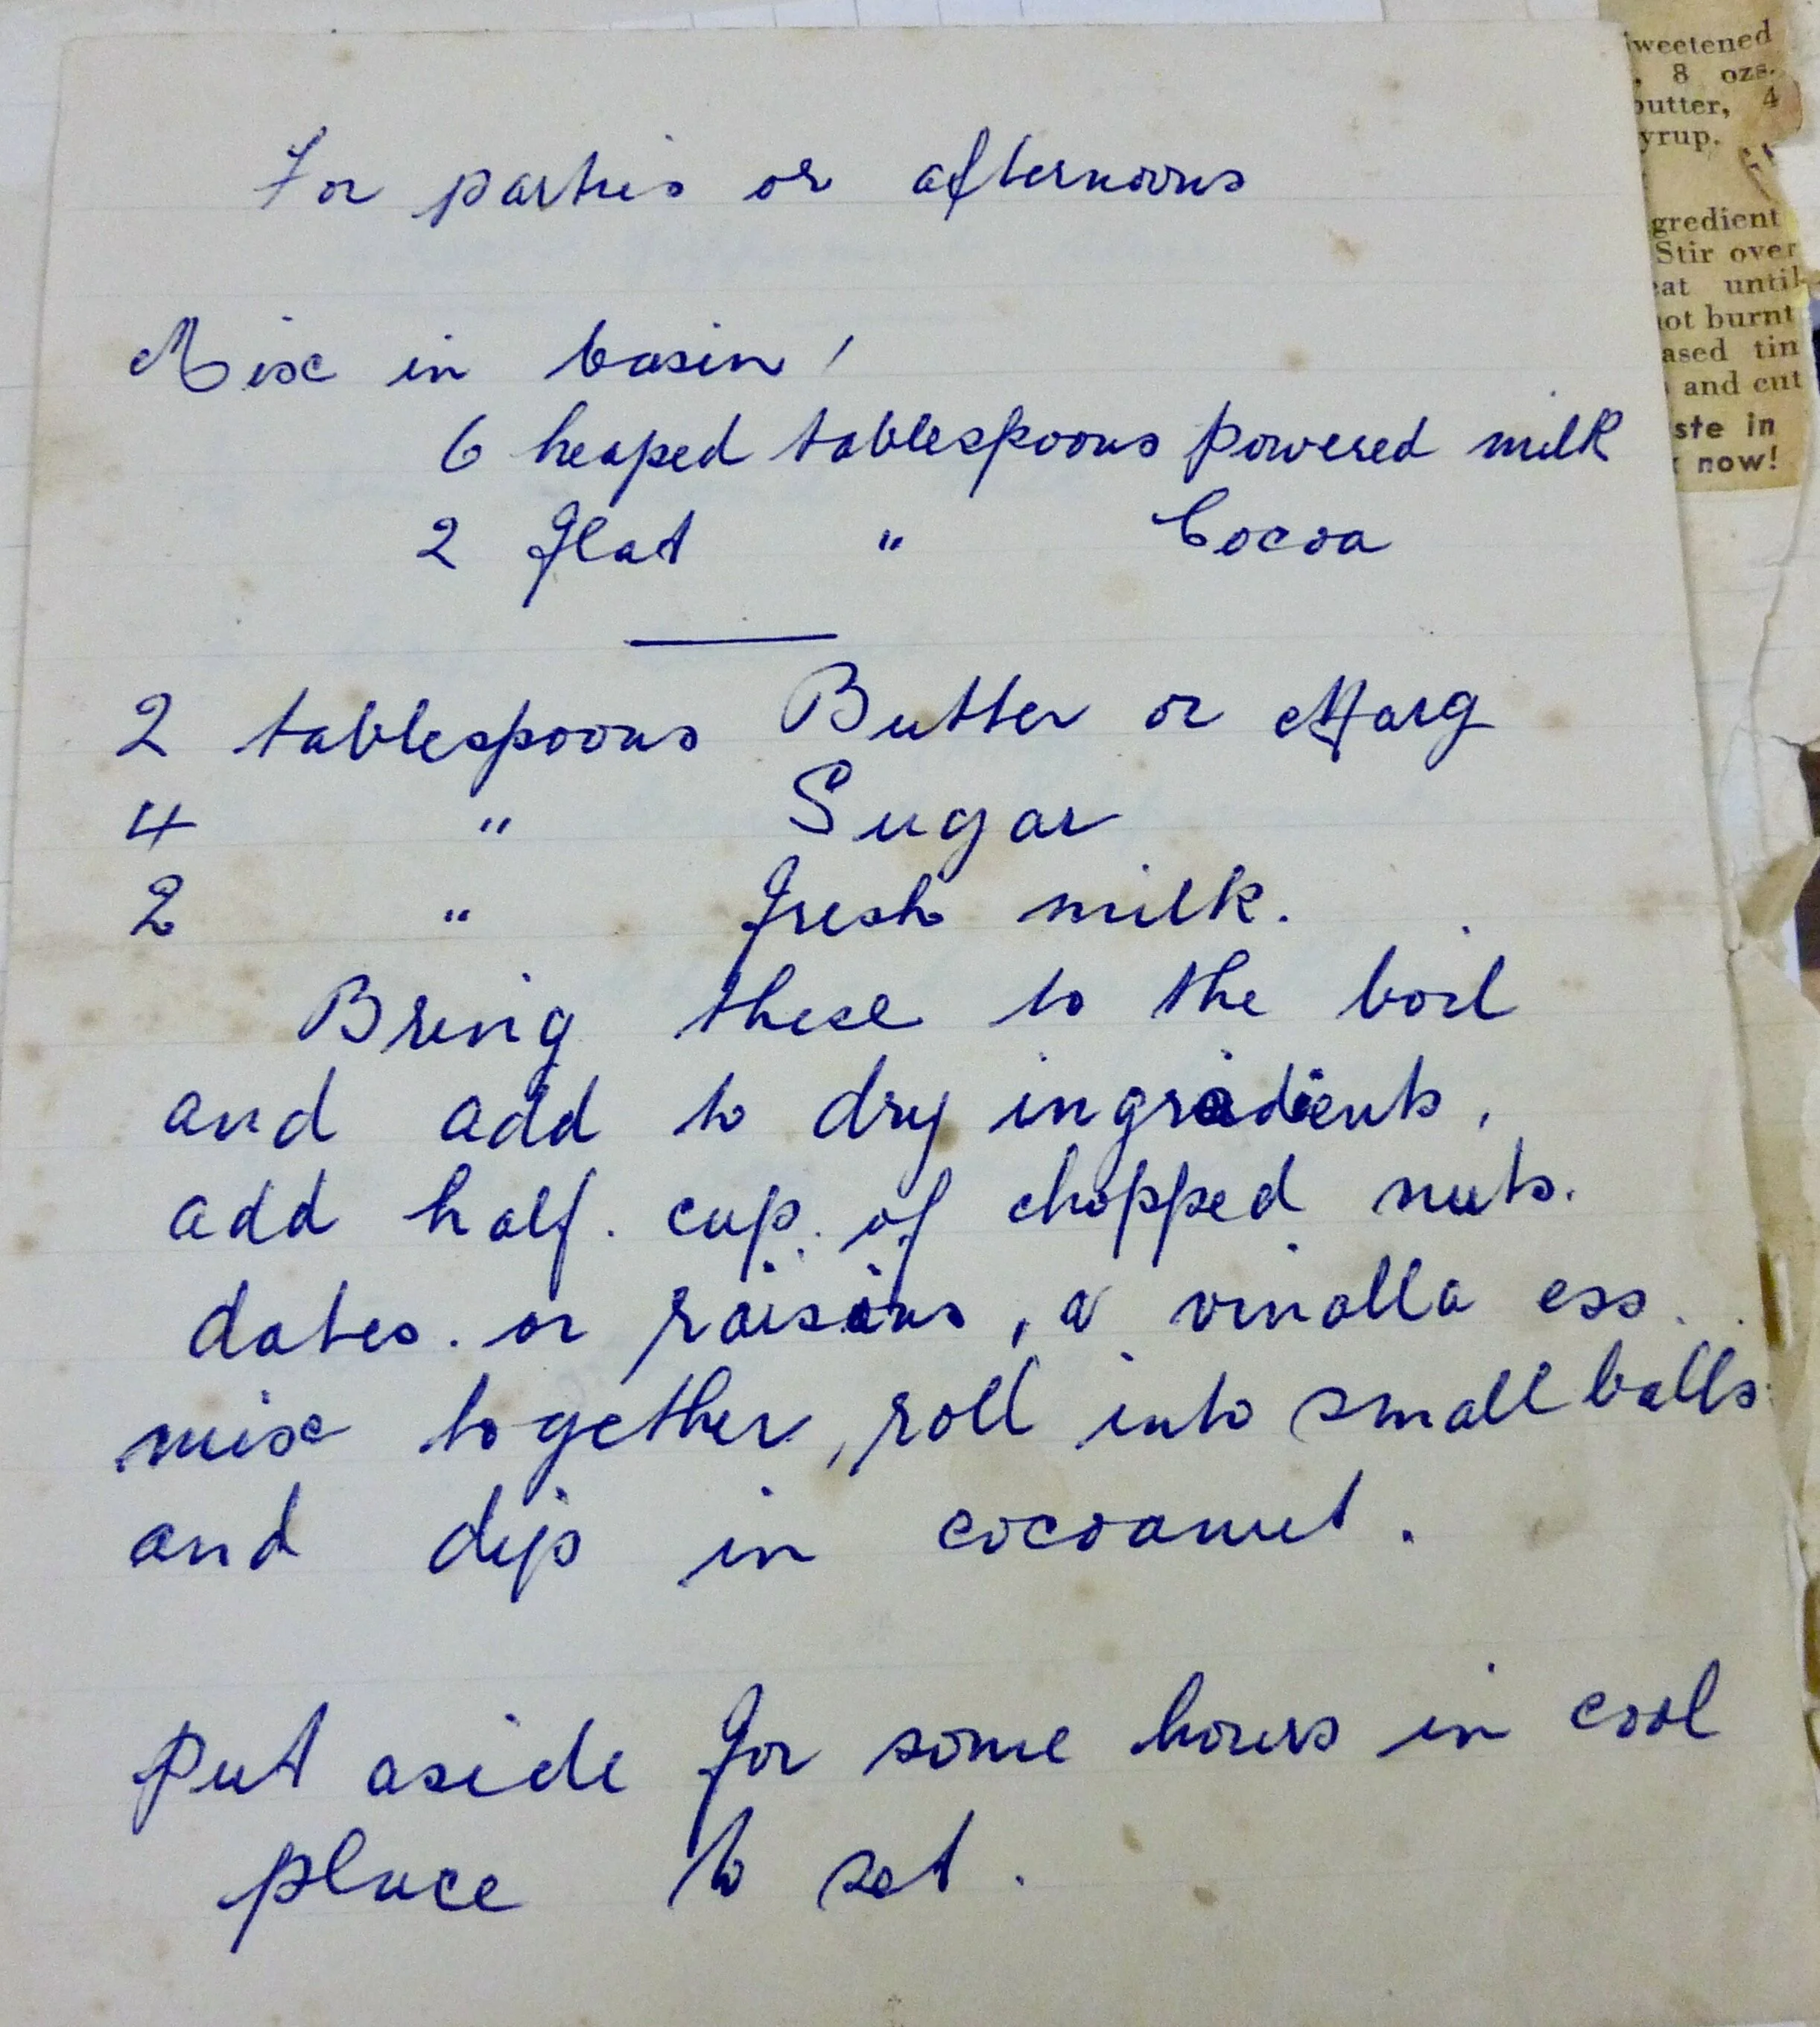 For parties or afternoons
Mix in basin,
6 heaped tablespoons powered milk
2 flat " Cocoa
2 tablespoons Butter or Marg
4 " Sugar
2 " fresh milk.
Bring these to the boil
and add to dry ingradients,
add half. cup. of chopped nuts.
dates. or raisins, a vinalla ess.
mix together, roll into small balls
and dip in cocoanut.
Put aside for some hours in cool
place to set.
weetened
, 8 ozs.
butter, 4
yrup.
gredient
Stir over
eat until
not burnt
ased tin
and cut
ste in
now!